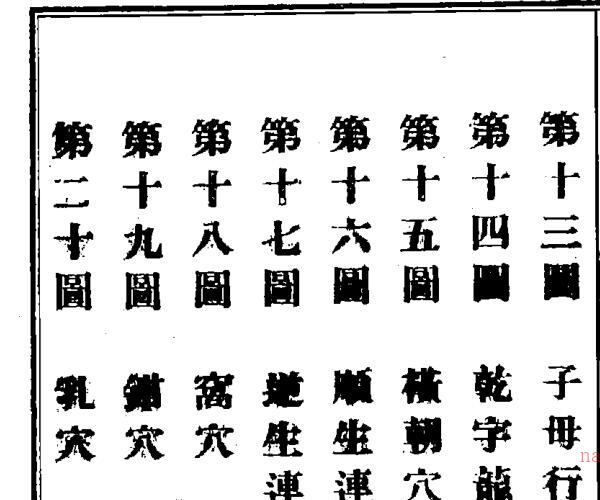 第十三圖 子母行
第十四圖 乾字龍
第十五圖 橫朝穴
第十六圖 順生連
第十七圖 逆生連
第十八圖 窩穴
第十九圖 鉗穴
第二十圖 乳穴
na